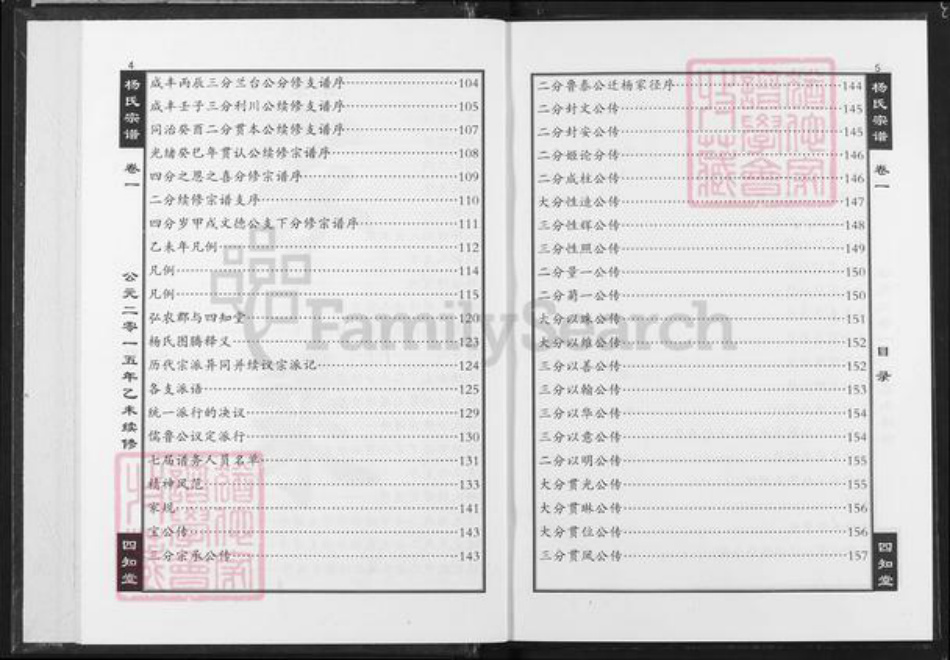 4
杨氏宗谱
卷一
公元二零一五年乙未续修
四知堂
咸丰丙辰三分兰台公分修支谱序 104
咸丰壬子三分利川公续修支谱序 105
同治癸酉二分贯本公续修支谱序 107
光绪癸巳年贯认公续修宗谱序 108
四分之恩之喜分修宗谱序 109
二分续修宗谱支序 110
四分岁甲戌文德公支下分修宗谱序 111
乙未年凡例 112
凡例 114
凡例 115
弘农郡与四知堂 120
杨氏图腾释义 123
历代宗派异同并续议宗派记 124
各支派语 125
统一派行的决议 129
儒鲁公议定派行 130
七届谱务人员名单 131
精神风范 133
家规 141
宝公传 143
三分宗承公传 143
5
杨氏宗谱
卷一
目录
四知堂
二分鲁泰公迁杨家径序 144
二分封文公传 145
二分封安公传 145
二分姬论分传 146
二分成柱公传 146
大分性连公传 147
三分性辉公传 148
三分性照公传 149
二分量一公传 150
二分蒭一公传 150
大分以珠公传 151
大分以维公传 152
三分以善公传 152
三分以翰公传 153
三分以华公传 154
三分以意公传 154
二分以明公传 155
大分贯光公传 155
大分贯琳公传 156
大分贯位公传 156
三分贯凤公传 157
FamilySearch